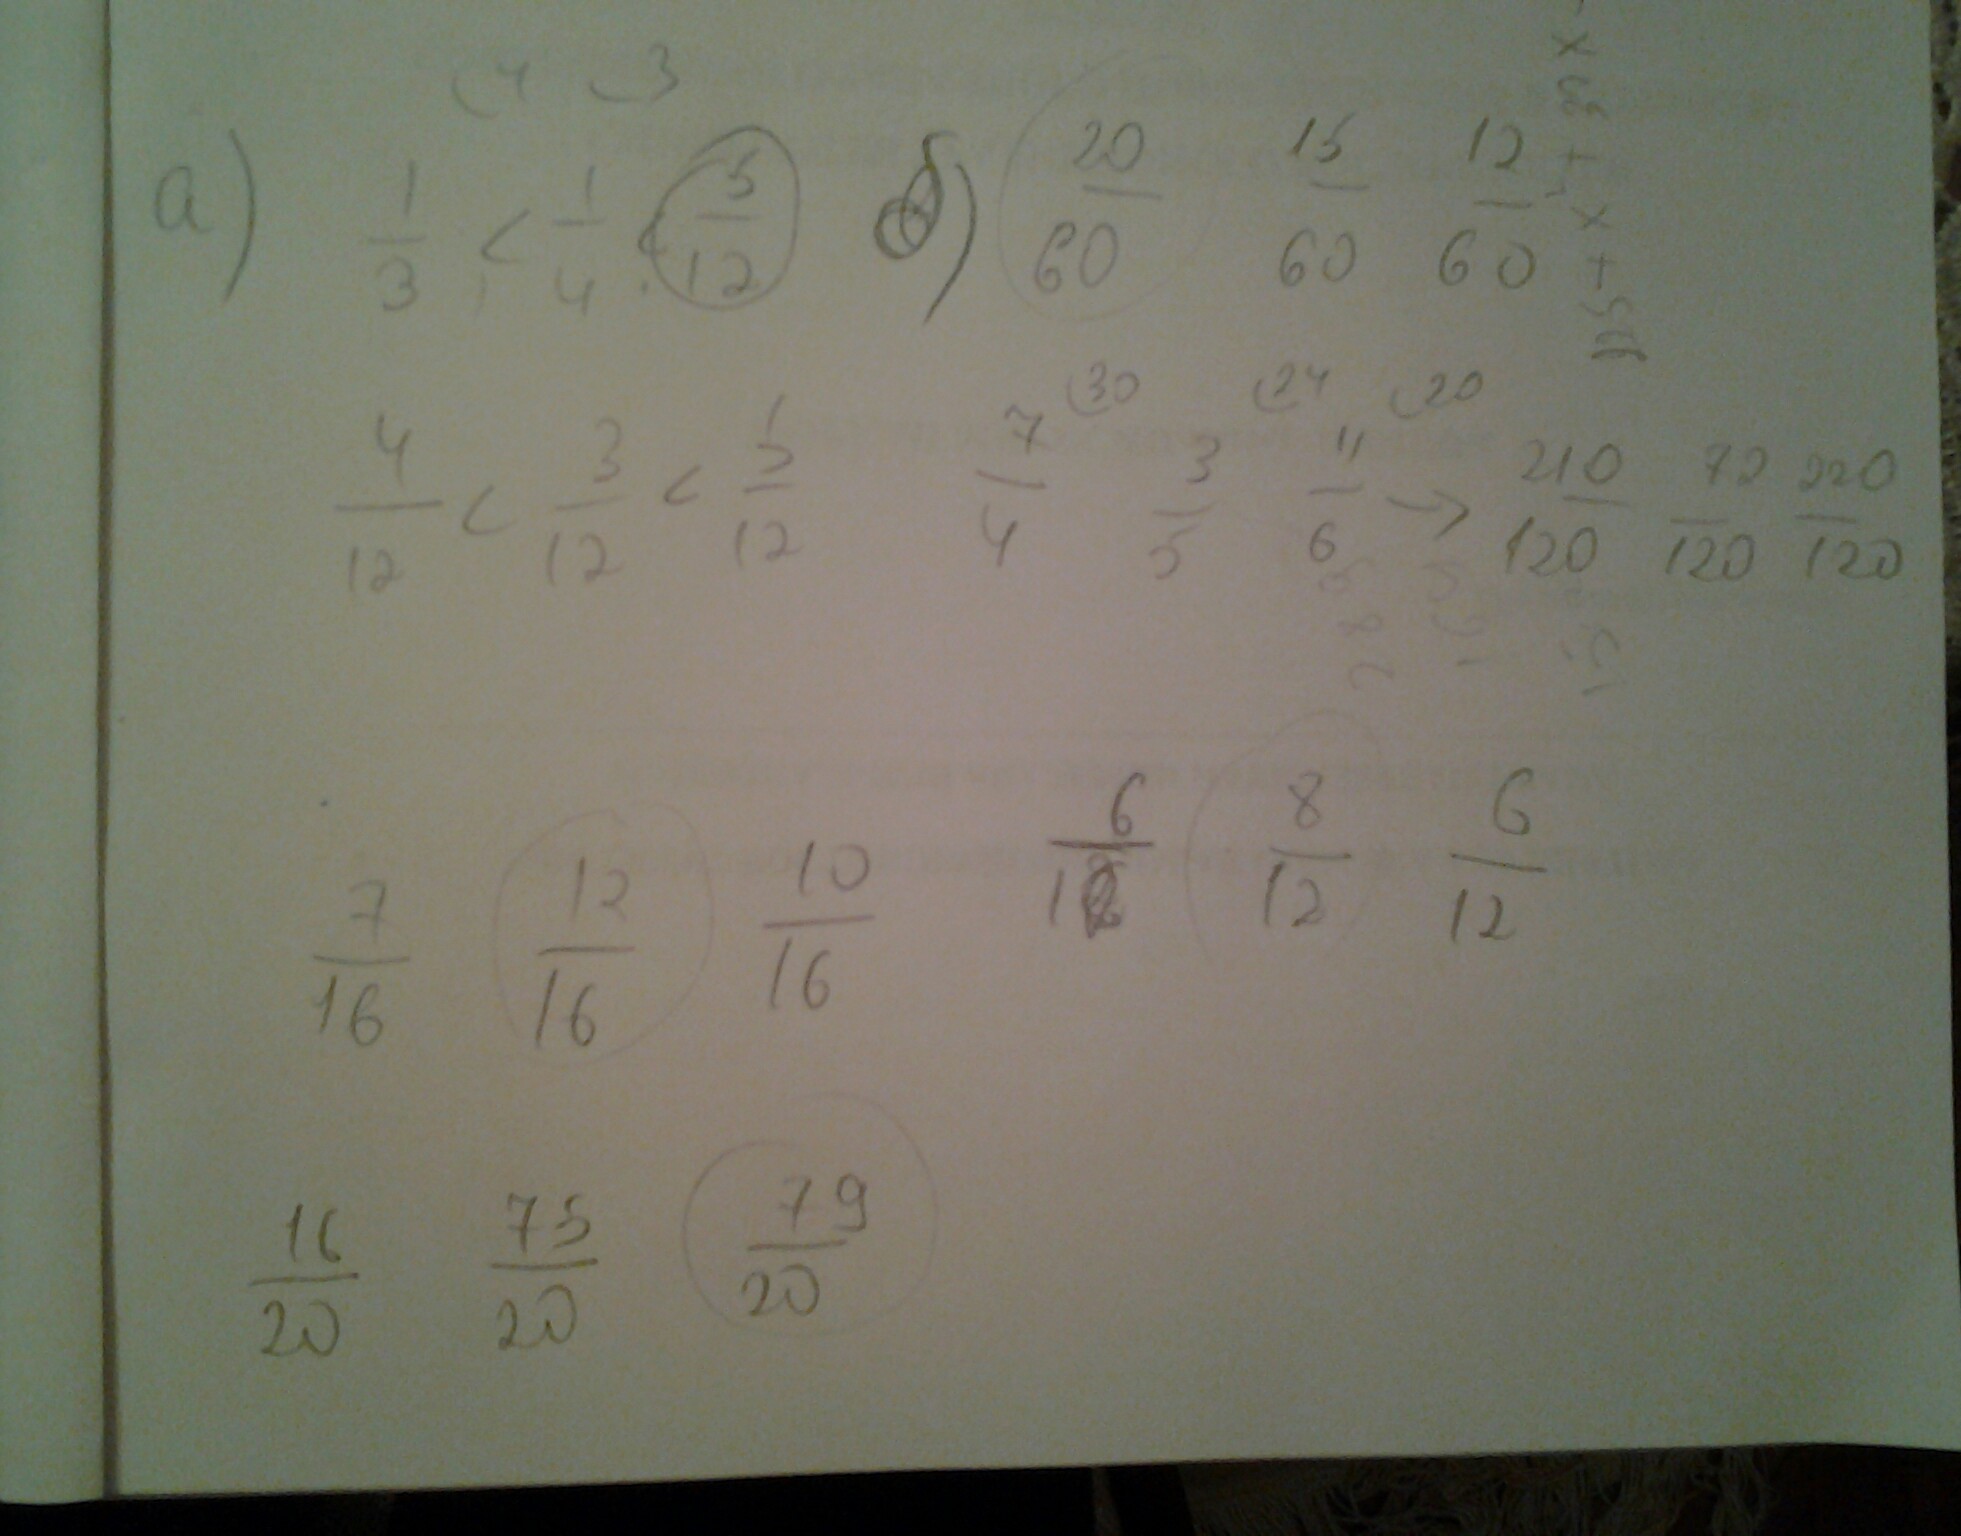 4 3
а) 1/3 < 1/4 < 5/12 б) 20/60 15/60 12/60
30 24 20
4/12 < 3/12 < 5/12 7/4 3/5 11/6 → 210/120 72/120 220/120
7/16 12/16 10/16 6/12 8/12 6/12
16/20 75/20 79/20